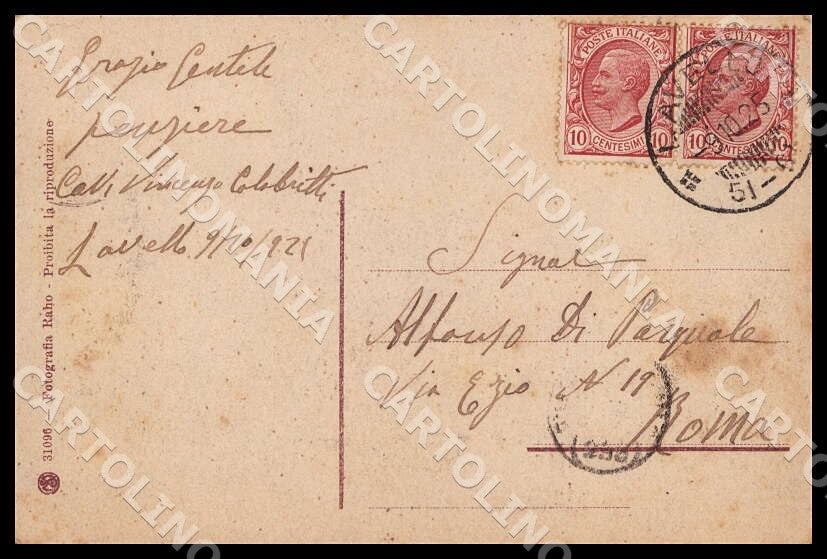 Grazie Gentile
pensiere
Cav. Vincenzo Calabritti
Lavello 9/10/925
31096 - Fotografia Raho - Proibita la riproduzione
POSTE ITALIANE
10 CENTESIMI 10
POSTE ITALIANE
CENTESIMI 10
LAVELLO
10.25
51 -
Signor
Alfonso Di Pasquale
Via Ezio N 19
Roma
CARTOLINOMANIA